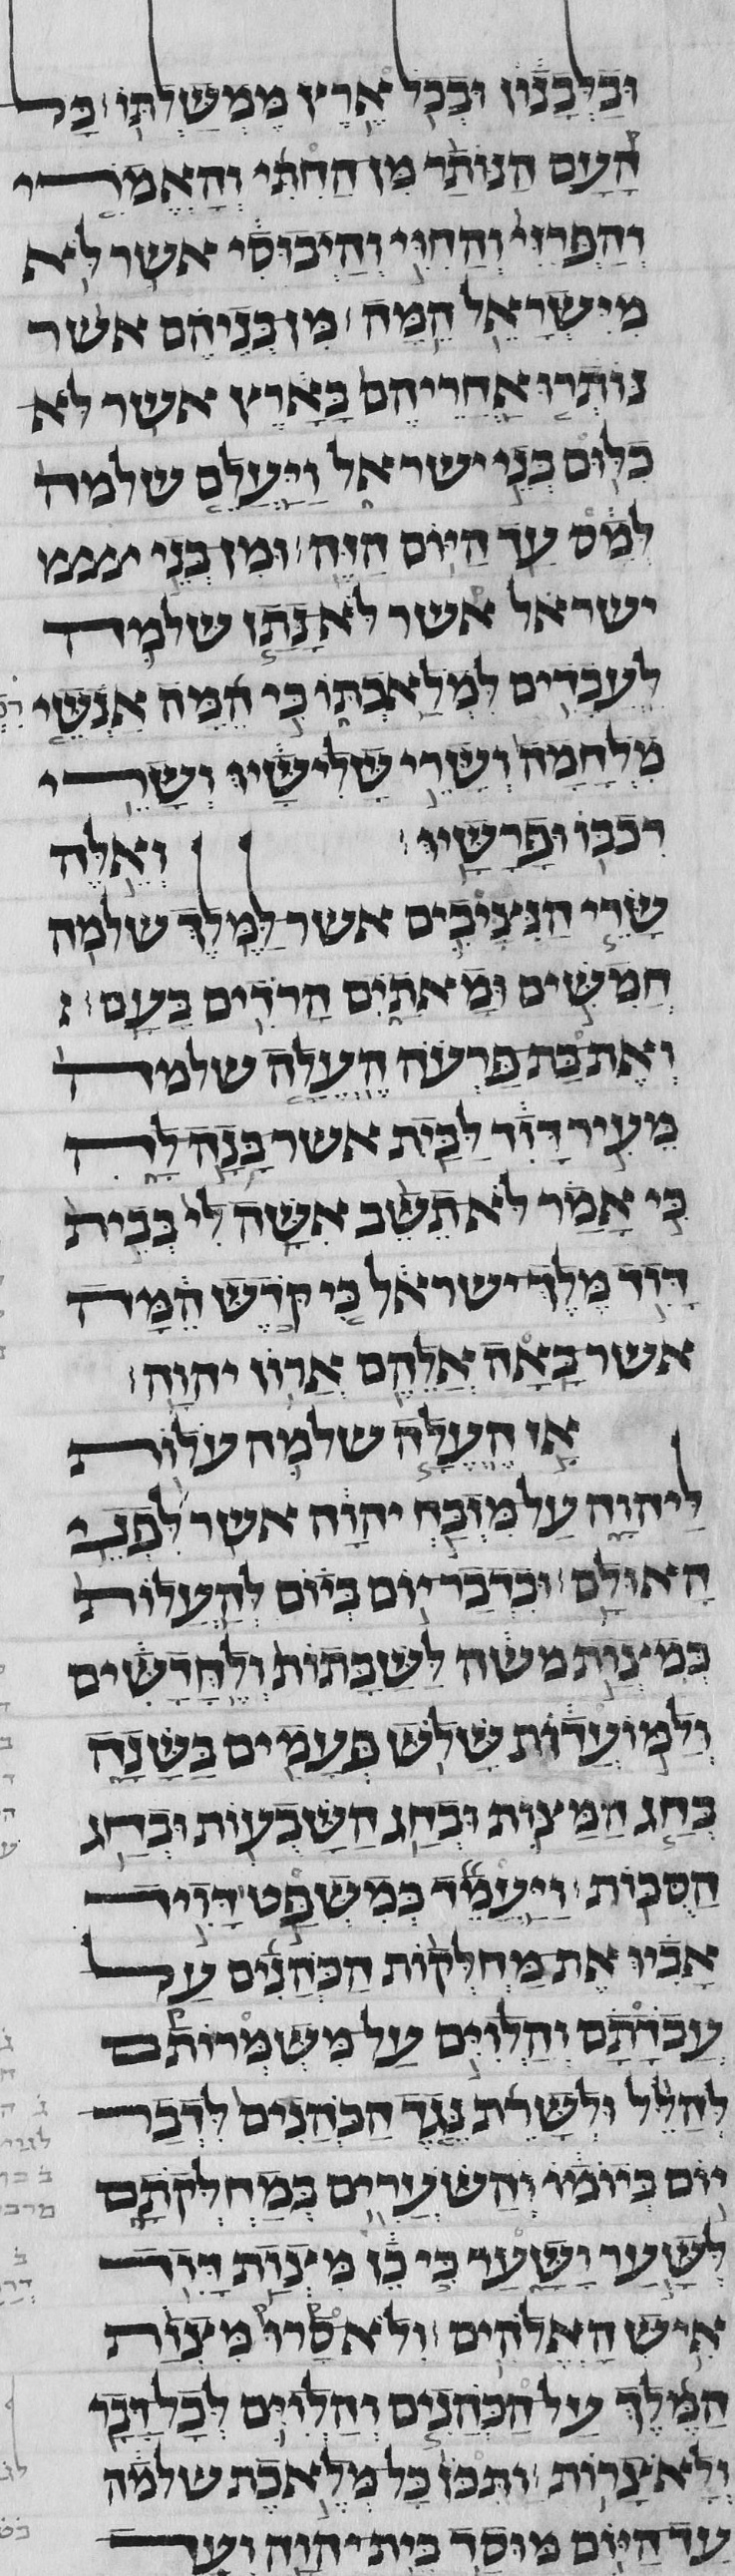 ובלבנון ובכל ארץ ממשלתו כל
העם הנותר מן החתי והאמרי
והפרזי והחוי והיבוסי אשר לא
מישראל המה מן בניהם אשר
נותרו אחריהם בארץ אשר לא
כלום בני ישראל ויעלם שלמה
למס עד היום הזה ומן בני
ישראל אשר לא נתן שלמה
לעבדים למלאכתו כי המה אנשי
מלחמה ושרי שלישיו ושרי
רכבו ופרשיו ואלה
שרי הנציבים אשר למלך שלמה
חמשים ומאתים הרדים בעם
ואת בת פרעה העלה שלמה
מעיר דויד לבית אשר בנה לה
כי אמר לא תשב אשה לי בבית
דויד מלך ישראל כי קדש המה
אשר באה אליהם ארון יהוה
אז העלה שלמה עלות
ליהוה על מזבח יהוה אשר לפני
האולם ובדבר יום ביום להעלות
כמצות משה לשבתות ולחדשים
ולמועדות שלש פעמים בשנה
בחג המצות ובחג השבעות ובחג
הסכות ויעמד כמשפט דויד
אביו את מחלקות הכהנים על
עבדתם והלוים על משמרותם
להלל ולשרת נגד הכהנים לדבר
יום ביומו והשערים במחלקתם
לשער ושער כי כן מצות דויד
איש האלהים ולא סרו מצות
המלך על הכהנים והלוים לכל דבר
ולאצרות ותכן כל מלאכת שלמה
עד היום מוסד בית יהוה ועד